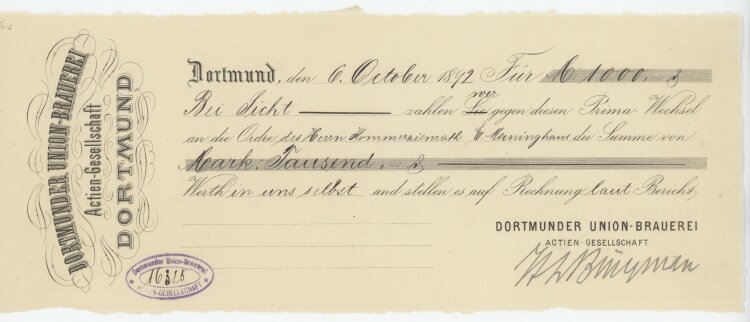 DORTMUNDER UNION-BRAUEREI
Actien-Gesellschaft
DORTMUND
Dortmund, den 6. October 1892 Für M. 1000.-
Bei Sicht zahlen Sie wir gegen diesen Prima-Wechsel
an die Ordre des Herrn Kommerzienrath E. Meininghaus die Summe von
Mark: Tausend.-
Werth in uns selbst und stellen es auf Rechnung laut Bericht.
DORTMUNDER UNION-BRAUEREI
ACTIEN-GESELLSCHAFT
Dortmunder Union-Brauerei
16315
ACTIEN-GESELLSCHAFT